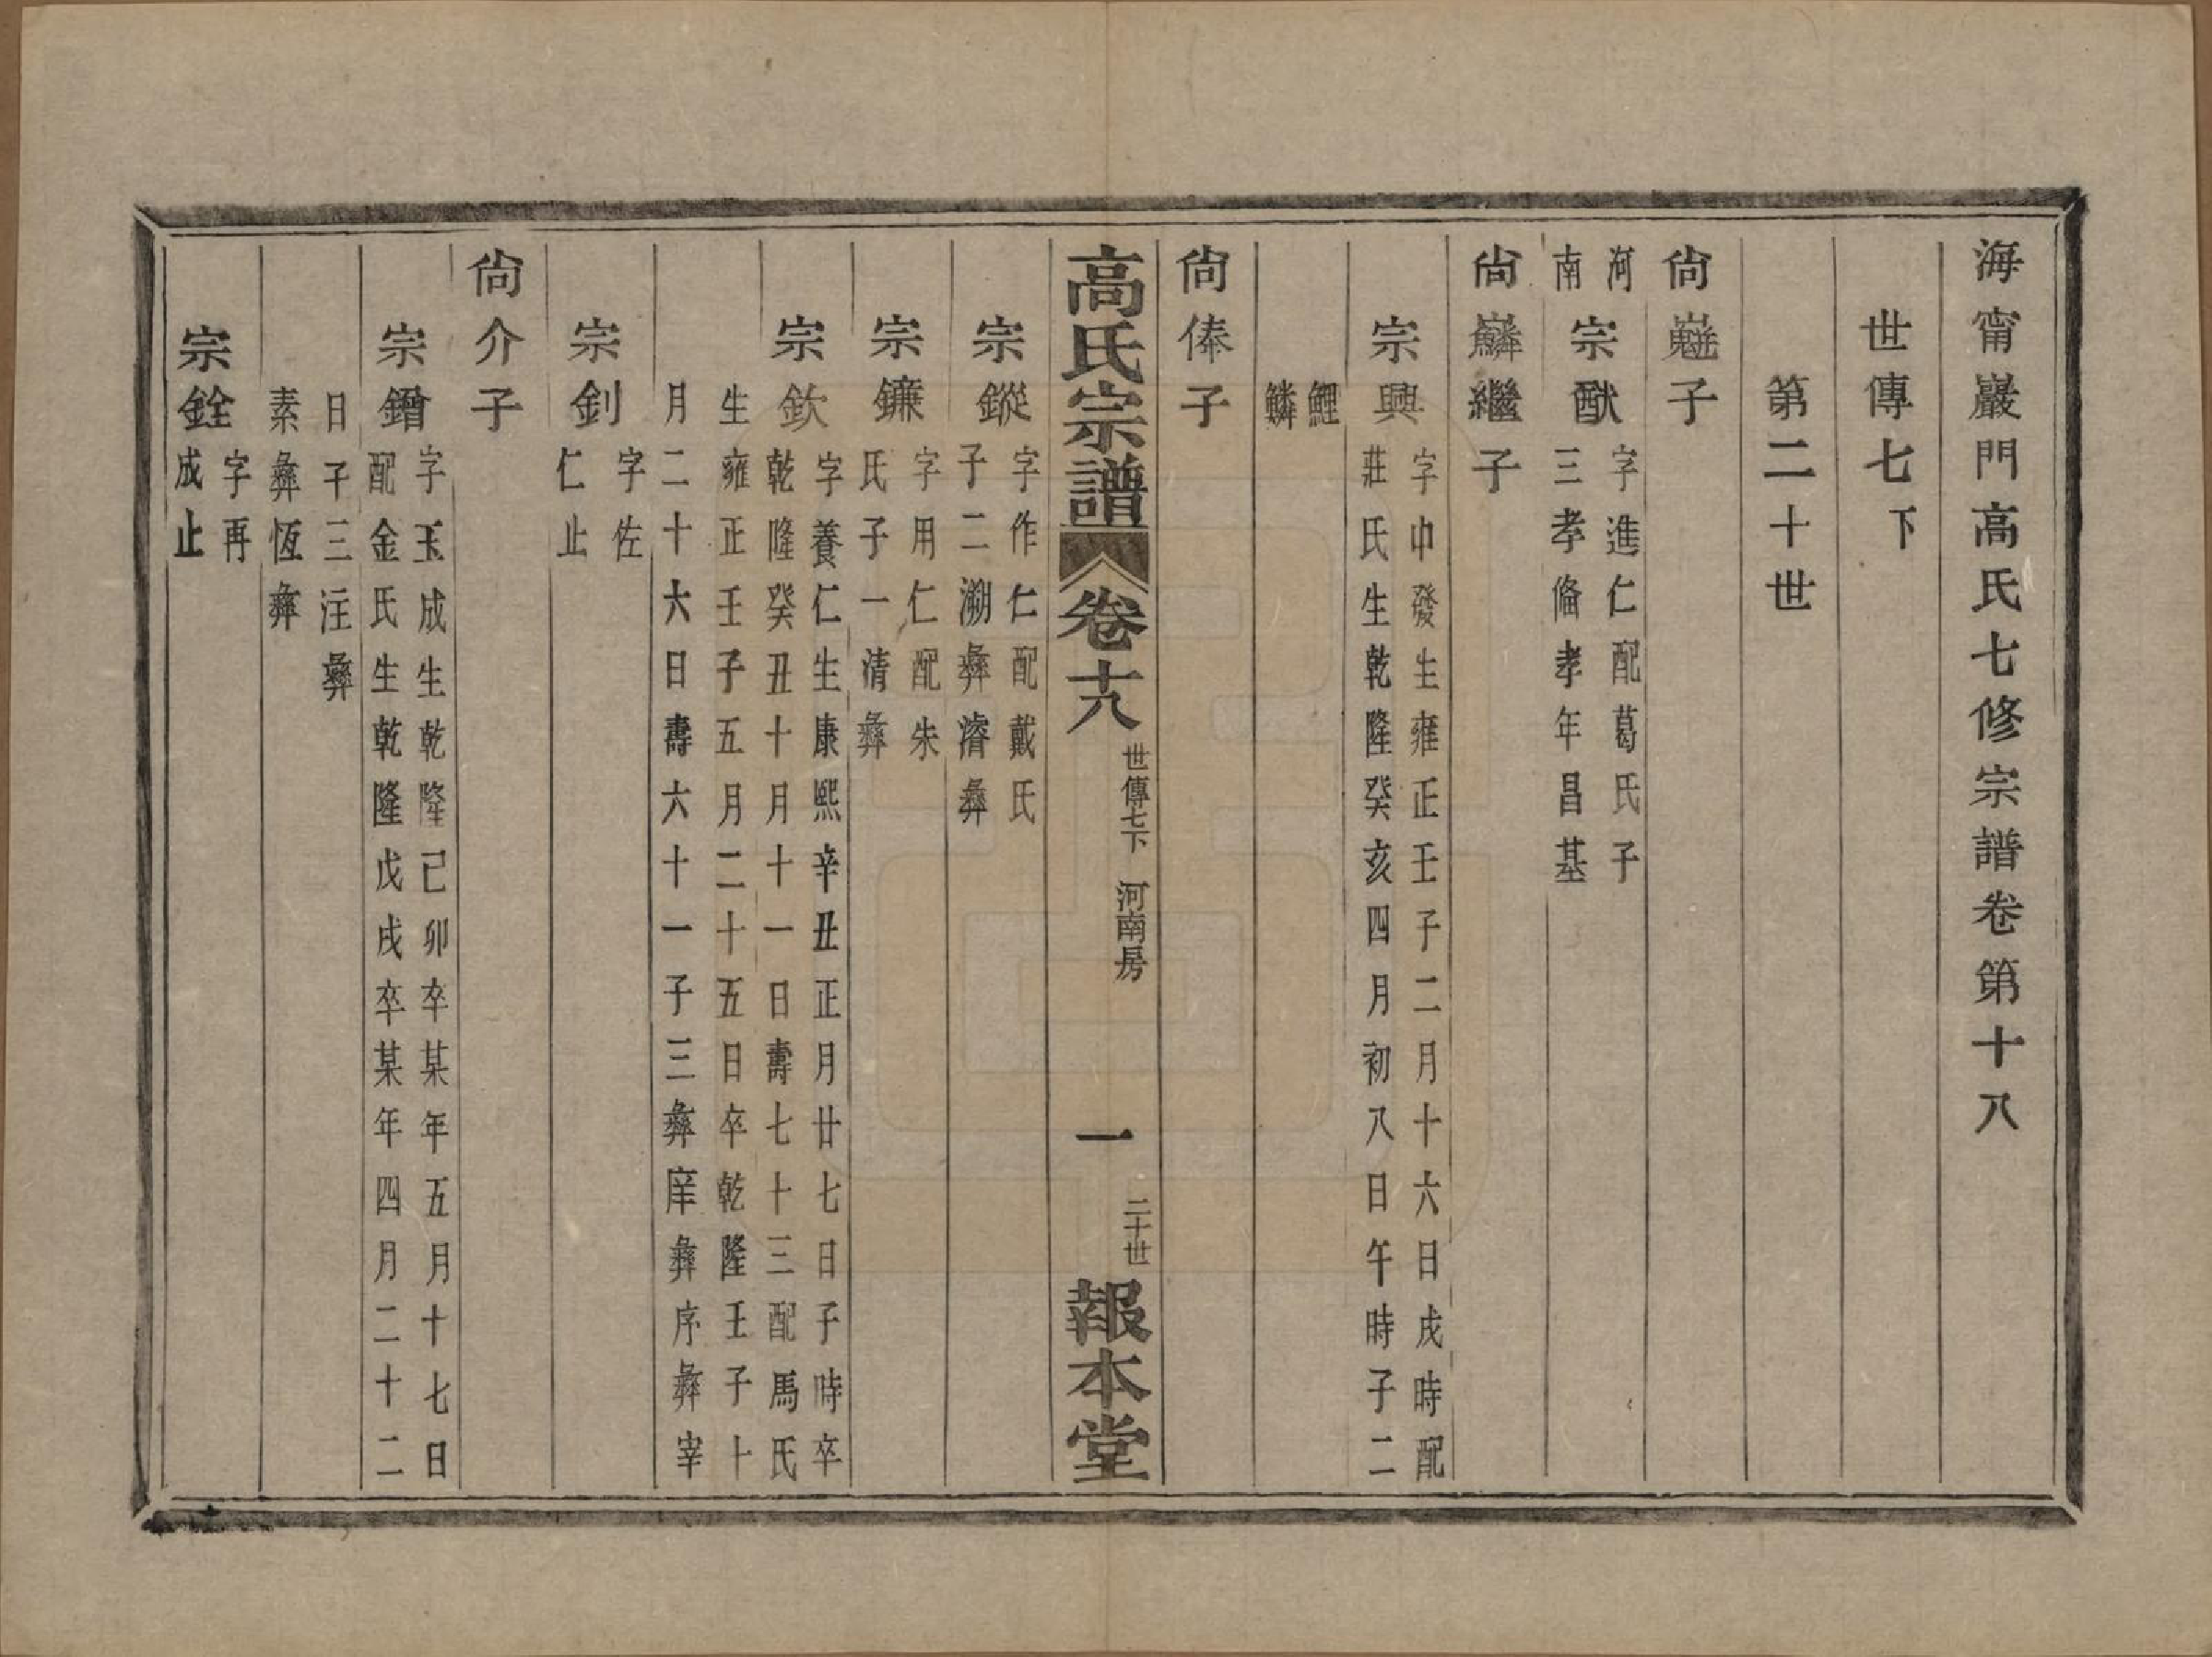 海甯巖門高氏七修宗譜卷第十八
世傳七下
第二十世
尙子
河南
宗猷 字進仁配葛氏子
三孝俻孝年昌基
尙繼子
宗興 字中發生雍正壬子二月十六日戌時配
莊氏生乾隆癸亥四月初八日午時子二
鯉
鱗
尙俸子
高氏宗譜 卷十八 世傳七下 河南房 一 二十世 報本堂
宗鏦 字作仁配戴氏
子二溯彝濬彝
宗鐮 字用仁配朱
氏子一清彝
宗欽 字養仁生康熙辛丑正月廿七日子時卒
乾隆癸丑十月十一日壽七十三配馬氏
生雍正壬子五月二十五日卒乾隆壬子十
月二十六日壽六十一子三彝庠彝序彝宰
宗釗 字佐
仁止
尙介子
宗鐕 字玉成生乾隆己卯卒某年五月十七日
配金氏生乾隆戊戌卒某年四月二十二
日子三汪彝
素彝恆彝
宗銓 字再
成止